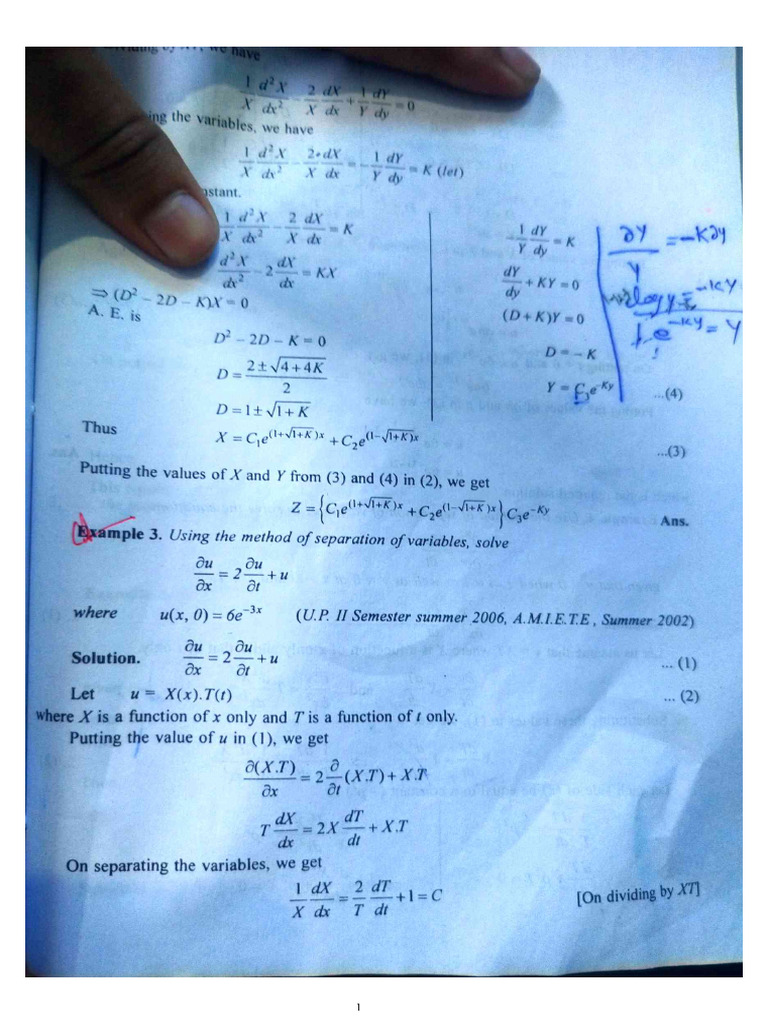 we have
1/X d²X/dx² - 2/X dX/dx + 1/Y dY/dy = 0
the variables, we have
1/X d²X/dx² - 2/X dX/dx = - 1/Y dY/dy = K (let)
1/X d²X/dx² - 2/X dX/dx = K
d²X/dx² - 2 dX/dx = KX
⇒ (D² – 2D – K)X = 0
A. E. is
D² – 2D – K = 0
D = (2 ± √(4 + 4K))/2
D = 1 ± √(1 + K)
Thus X = C₁e^((1+√(1+K))x) + C₂e^((1–√(1+K))x) ...(3)
- 1/Y dY/dy = K
dY/dy + KY = 0
(D + K)Y = 0
D = – K
Y = C₃e^(-Ky) ...(4)
∂Y/Y = -K∂y
e^(-KY) = Y
Putting the values of X and Y from (3) and (4) in (2), we get
Z = {C₁e^((1+√(1+K))x) + C₂e^((1–√(1+K))x)} C₃e^(–Ky) Ans.
Example 3. Using the method of separation of variables, solve
∂u/∂x = 2 ∂u/∂t + u
where u(x, 0) = 6e^(-3x) (U.P. II Semester summer 2006, A.M.I.E.T.E, Summer 2002)
Solution. ∂u/∂x = 2 ∂u/∂t + u ... (1)
Let u = X(x).T(t) ... (2)
where X is a function of x only and T is a function of t only.
Putting the value of u in (1), we get
∂(X.T)/∂x = 2 ∂/∂t (X.T) + X.T
T dX/dx = 2X dT/dt + X.T
On separating the variables, we get
1/X dX/dx = 2/T dT/dt + 1 = C [On dividing by XT]
1